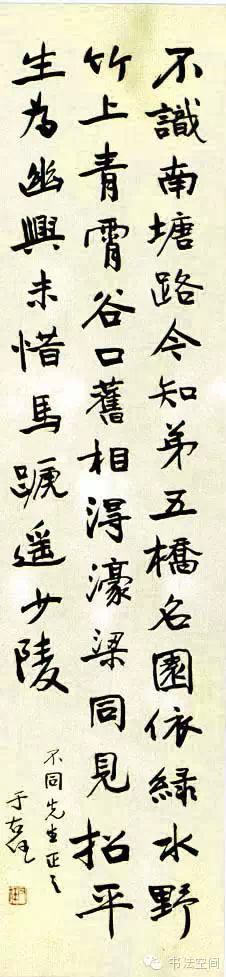 不識南塘路今知弟五橋名園依緑水野
竹上青霄谷口舊相得濠梁同見招平
生為幽興未惜馬蹏遥少陵
不同先生正之
于右任
书法空间